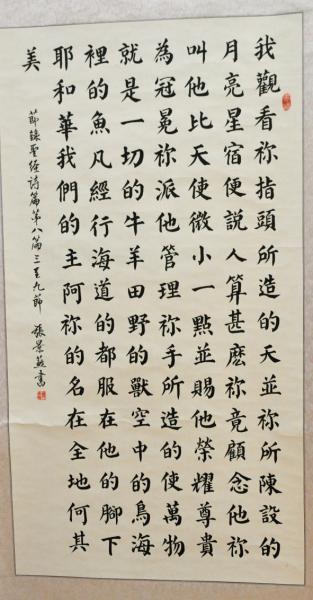 我觀看祢指頭所造的天並祢所陳設的
月亮星宿便説人算甚麽祢竟顧念他祢
叫他比天使微小一點並賜他榮耀尊貴
為冠冕祢派他管理祢手所造的使萬物
就是一切的牛羊田野的獸空中的鳥海
裡的魚凡經行海道的都服在他的腳下
耶和華我們的主阿祢的名在全地何其
美
節錄聖經詩篇第八篇三至九節 張景蘇書